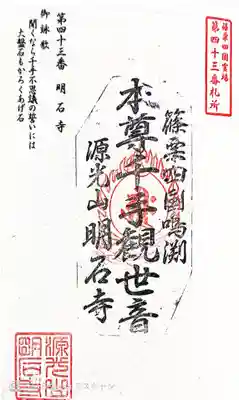 篠栗四国霊場
第四十三番札所
篠栗四國鳴渕
本尊千手観世音
源光山明石寺
第四十三番 明石寺
御詠歌
聞くならく千手不思議の誓いには
大盤石もかろくあげ石